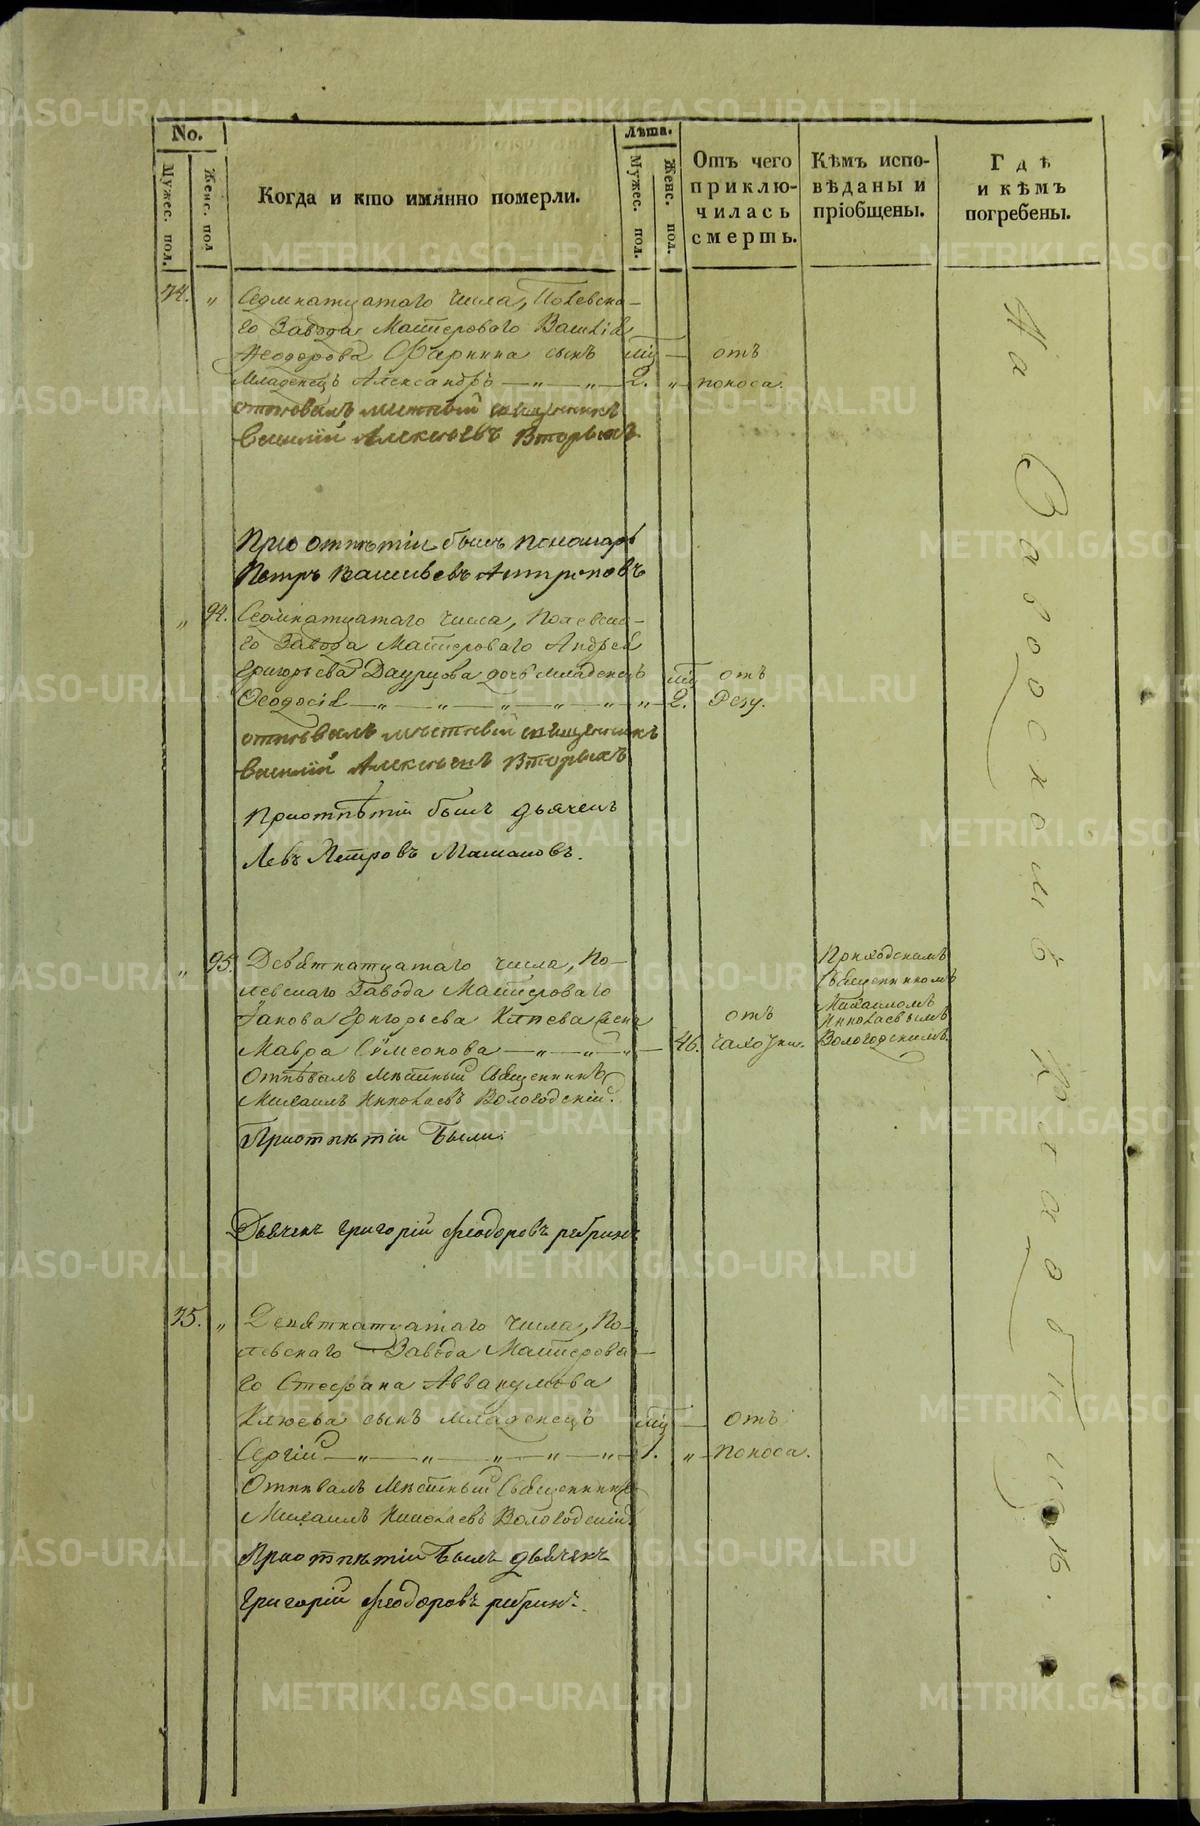 No.
Мужес. пол.
Женс. пол
Когда и кто имянно померли.
Лѣта.
Мужес. пол.
Женс. пол.
Отъ чего
приклю-
чилась
смерть.
Кѣмъ испо-
вѣданы и
пріобщены.
Гдѣ
и кѣмъ
погребены.
74. „ Седмнатцатаго числа, Полевска-
го Завода Мастероваго Василія
Ѳеодорова сынъ мц отъ
Младенецъ Александръ — „ — „ — 2. „ поноса.
отпѣвалъ местный священникъ
Василій Алексѣевъ Вторыхъ
При отпѣтіи былъ пономарь
Петръ Васильевъ Антроповъ
„ 94. Седмнатцатаго числа, Полевска-
го Завода Мастероваго Андрея
Григорьева Даурцова дочь младенецъ мц отъ
Ѳеодосія — „ — „ — „ — „ — „ — 2. Резу.
отпѣвалъ мѣстный священникъ
Василій Алексѣевъ Вторыхъ
При отпѣтіи былъ дьячекъ
Левъ Петровъ
„ 95. Девятнатцатаго числа, По-
левскаго Завода Мастероваго
Іакова Григорьева жена отъ
Мавра Сѵмеонова — „ — „ — „ — 46. чахотки.
Приходскимъ
Священникомъ
Михаиломъ
Николаевымъ
Вологодскимъ.
Отпѣвалъ Мѣстный Священникъ
Михаилъ Николаевъ Вологодскій.
При отпѣтіи были:
Дьячекъ Григорій Ѳеодоровъ
75. „ Девятнатцатаго числа, По-
левскаго Завода Мастерова-
го Стефана Аввакумова
Клюева сынъ младенецъ мц отъ
Сергій — „ — „ — „ — „ — „ — 1. „ поноса.
Отпѣвалъ Мѣстный Священникъ
Михаилъ Николаевъ Вологодскій.
При отпѣтіи былъ дьячекъ
Григорій Ѳеодоровъ
На Заводскомъ Кладбищѣ.
METRIKI.GASO-URAL.RU